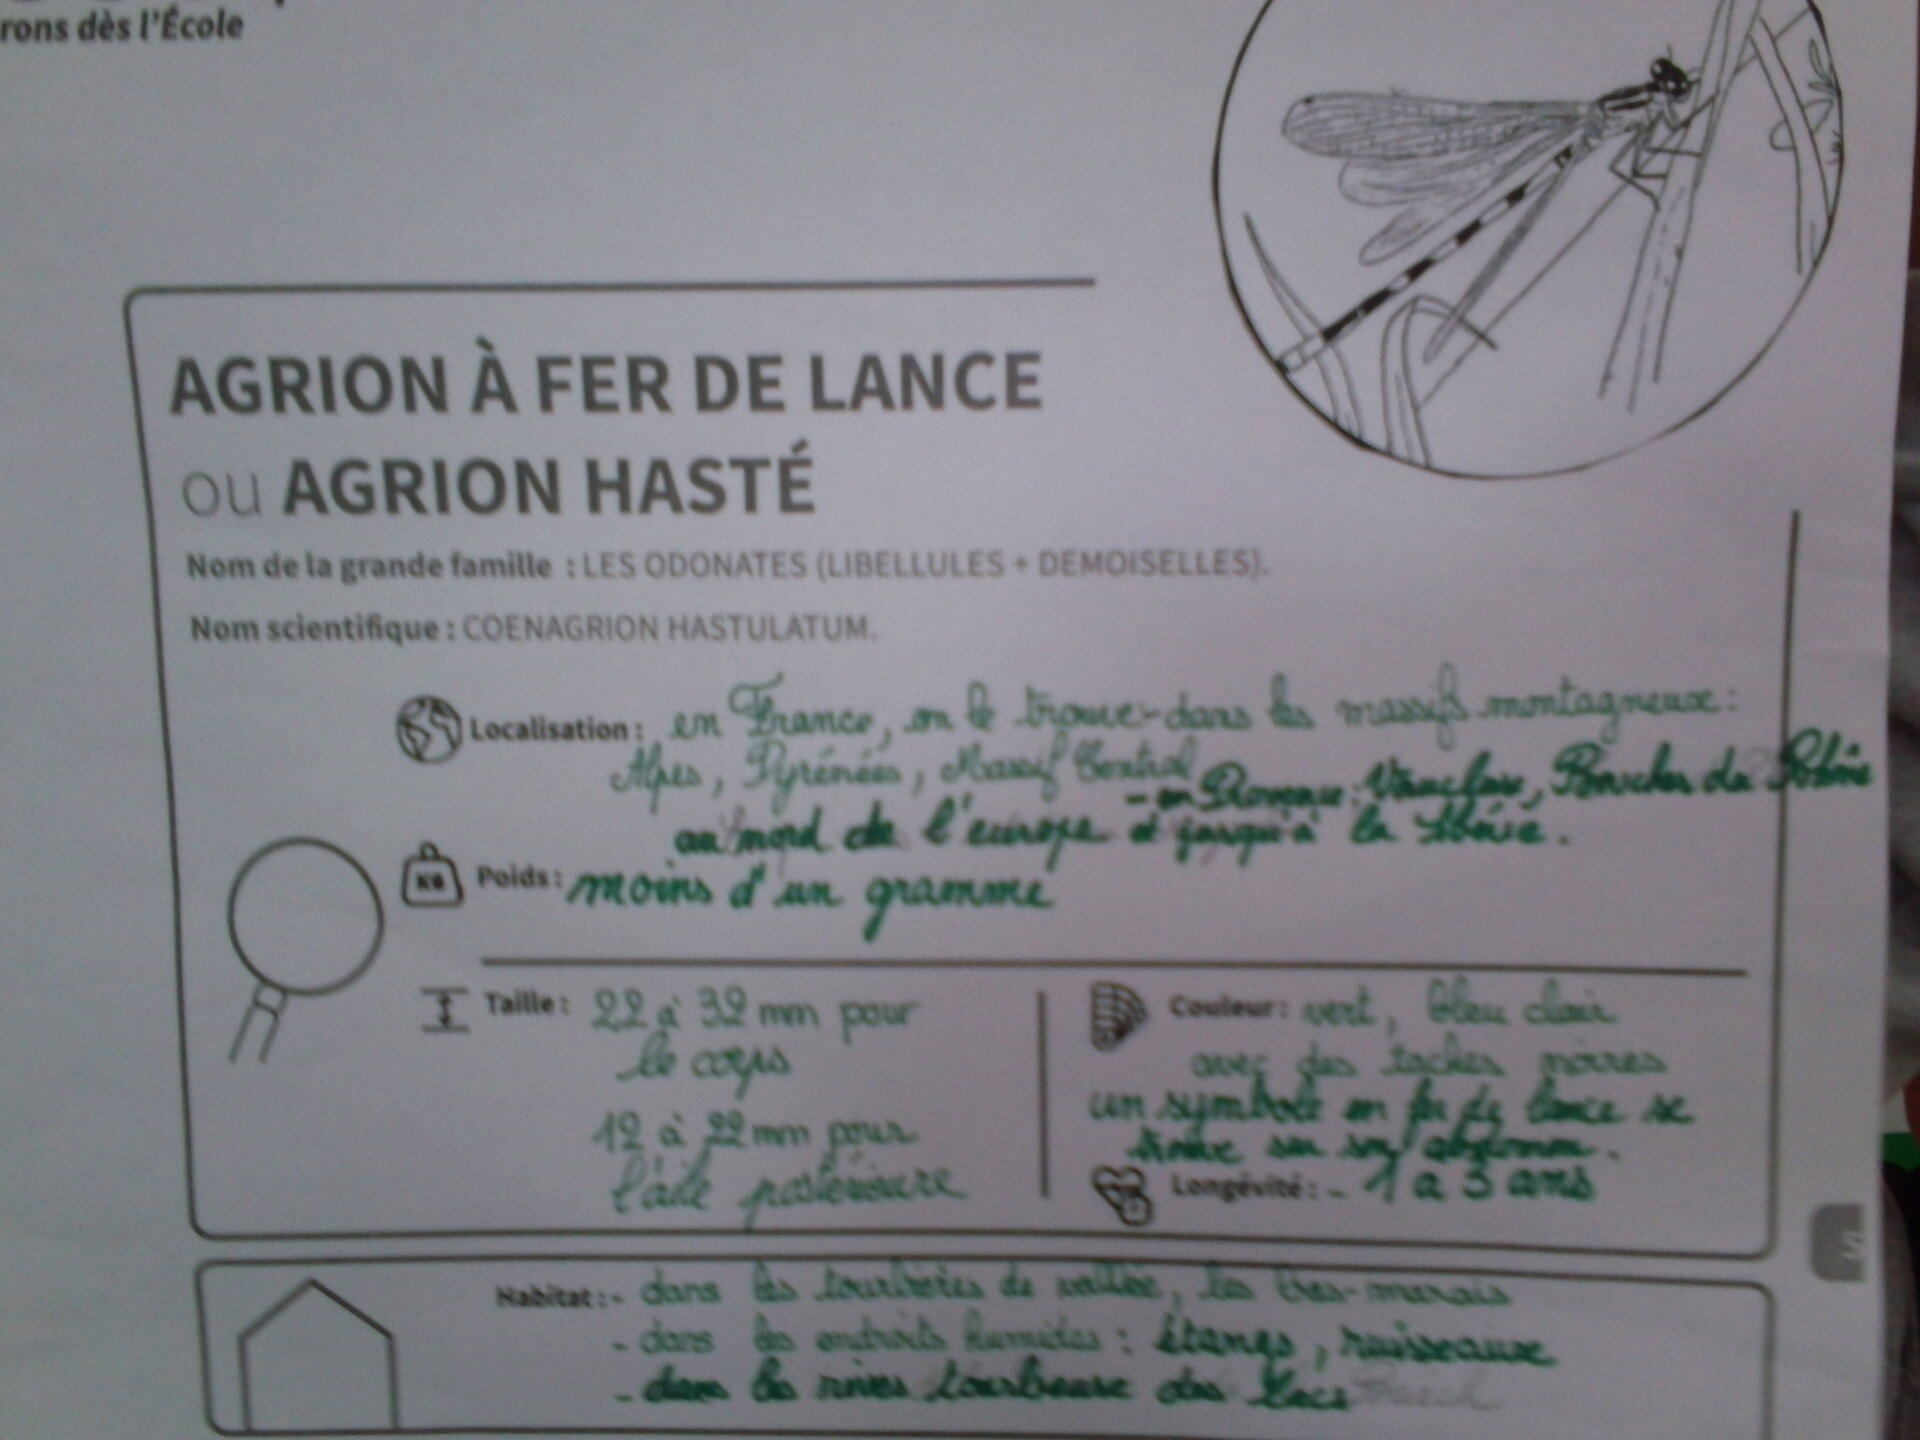 rons dès l'École
AGRION À FER DE LANCE
ou AGRION HASTÉ
Nom de la grande famille : LES ODONATES (LIBELLULES + DEMOISELLES).
Nom scientifique : COENAGRION HASTULATUM.
Localisation : en France, on le trouve dans les massifs montagneux :
Alpes, Pyrénées, Massif Central
- en Provence : Vaucluse, Bouches du Rhône
au nord de l'europe et jusqu'à la
KG Poids : moins d'un gramme
Taille : 22 à 32 mm pour
le corps
12 à 22 mm pour
l'aile postérieure
Couleur : vert, bleu clair
avec des taches noires
un symbole en fer de lance se
trouve sur son abdomen.
Longévité : - 1 à 3 ans
5
Habitat : - dans les tourbières de vallée, les bas-marais
- dans les endroits humides : étangs, ruisseaux
- dans les rives tourbeuse des lacs